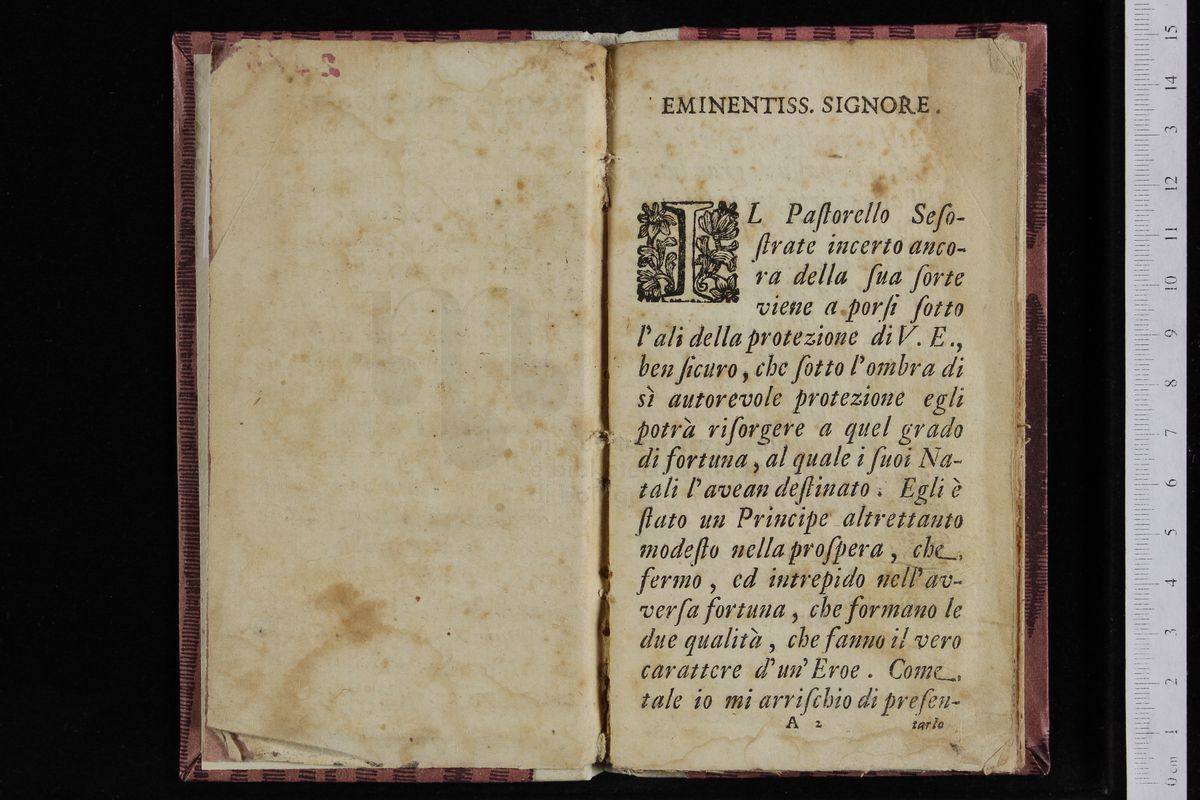 EMINENTISS. SIGNORE.
IL Paſtorello Seſo-
ſtrate incerto anco-
ra della ſua ſorte
viene a porſi ſotto
l'ali della protezione di V. E.,
ben ſicuro, che ſotto l'ombra di
sì autorevole protezione egli
potrà riſorgere a quel grado
di fortuna, al quale i ſuoi Na-
tali l'avean deſtinato. Egli è
ſtato un Principe altrettanto
modeſto nella proſpera, che
fermo, ed intrepido nell'av-
verſa fortuna, che formano le
due qualità, che fanno il vero
carattere d'un'Eroe. Come
tale io mi arriſchio di preſen-
A 2 tarlo
0 cm 1 2 3 4 5 6 7 8 9 10 11 12 3 14 15